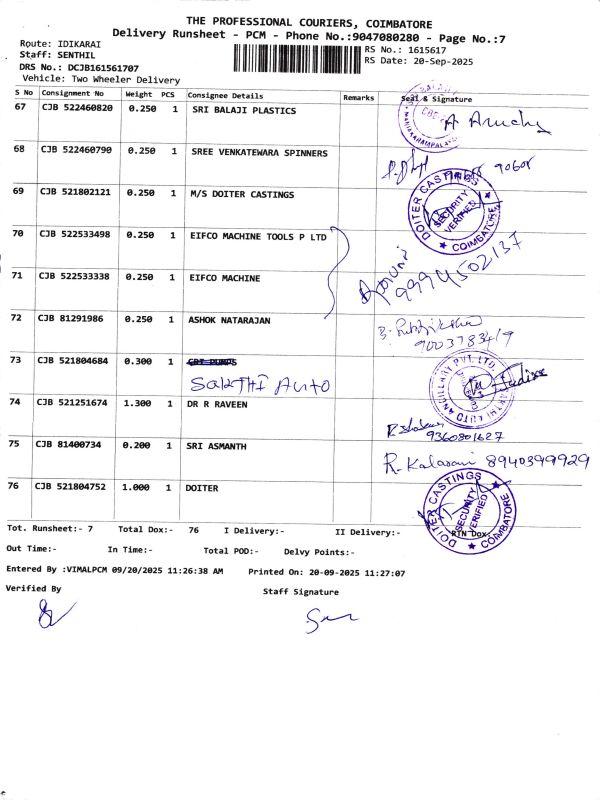 THE PROFESSIONAL COURIERS, COIMBATORE
Delivery Runsheet - PCM - Phone No.:9047080280 - Page No.:7
Route: IDIKARAI
Staff: SENTHIL
DRS No.: DCJB161561707
Vehicle: Two Wheeler Delivery
RS No.: 1615617
RS Date: 20-Sep-2025
S No Consignment No Weight PCS Consignee Details Remarks Seal & Signature
67 CJB 522460820 0.250 1 SRI BALAJI PLASTICS
68 CJB 522460790 0.250 1 SREE VENKATEWARA SPINNERS
69 CJB 521802121 0.250 1 M/S DOITER CASTINGS
DOITER CASTINGS
SECURITY VERIFIED
COIMBATORE
70 CJB 522533498 0.250 1 EIFCO MACHINE TOOLS P LTD
71 CJB 522533338 0.250 1 EIFCO MACHINE
72 CJB 81291986 0.250 1 ASHOK NATARAJAN
9003783419
73 CJB 521804684 0.300 1 CRI PUMPS
SAKTHI AUTO
SAKTHI AUTO ANCILLARY PVT. LTD.
74 CJB 521251674 1.300 1 DR R RAVEEN
9360801627
75 CJB 81400734 0.200 1 SRI ASMANTH
R. Kalavani 8940399929
76 CJB 521804752 1.000 1 DOITER
DOITER CASTINGS
SECURITY VERIFIED
COIMBATORE
Tot. Runsheet:- 7 Total Dox:- 76 I Delivery:- II Delivery:- RTN Dox:-
Out Time:- In Time:- Total POD:- Delvy Points:-
Entered By :VIMALPCM 09/20/2025 11:26:38 AM Printed On: 20-09-2025 11:27:07
Verified By Staff Signature